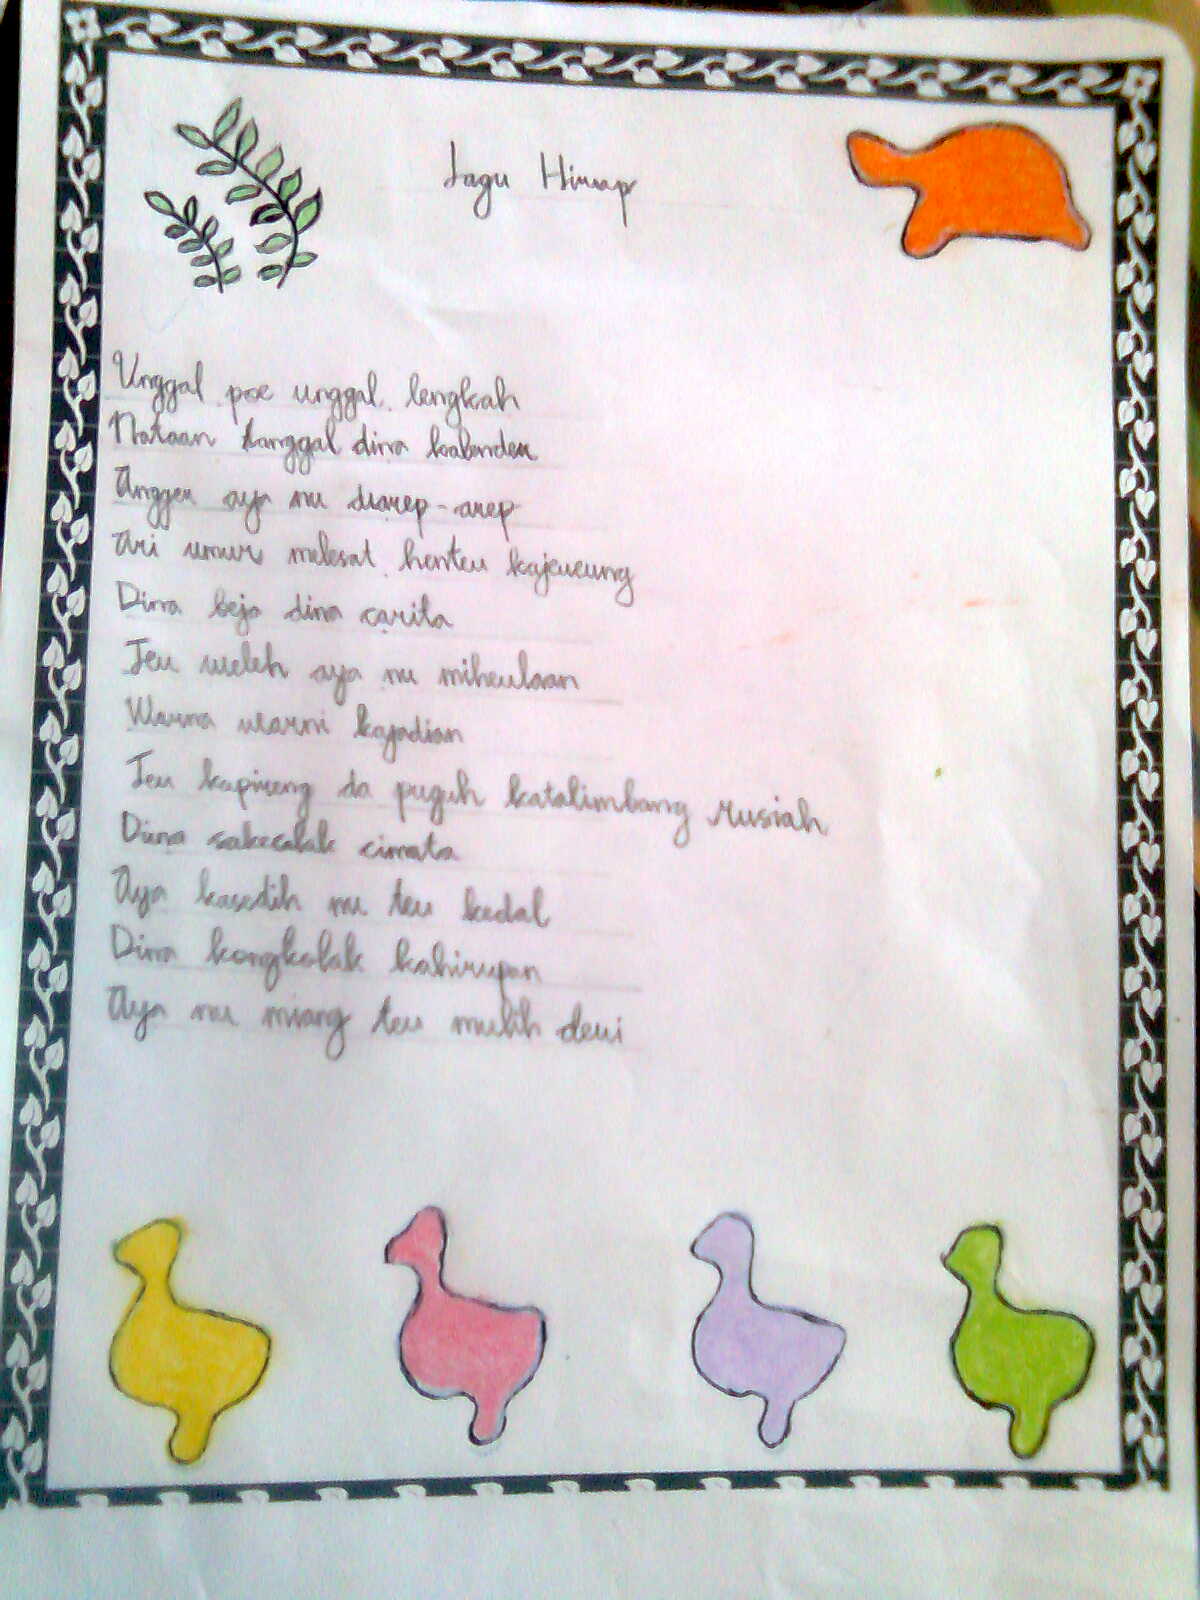 Lagu Hirup
Unggal poe unggal lengkah
Nataan tanggal dina kalender
Angger aya nu diarep-arep
Ari umur melesat henteu kajeueung
Dina beja dina carita
Teu weleh aya nu miheulaan
Warna warni kajadian
Teu kapireng da puguh katalimbang rusiah
Dina sakeclak cimata
Aya kasedih nu teu kedal
Dina kongkolak kahirupan
Aya nu miang teu mulih deui